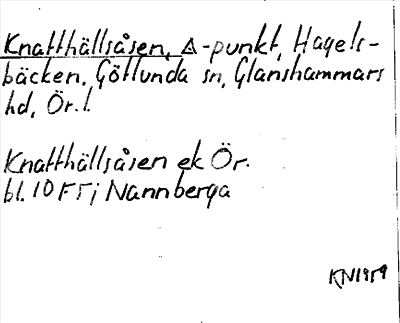 Knatthällsåsen, △-punkt, Hagels-
bäcken, Götlunda sn, Glanshammars
hd, Ör. l.
Knatthällsåsen ek Ör.
bl. 10 F 5 j Nannberga
KN1959